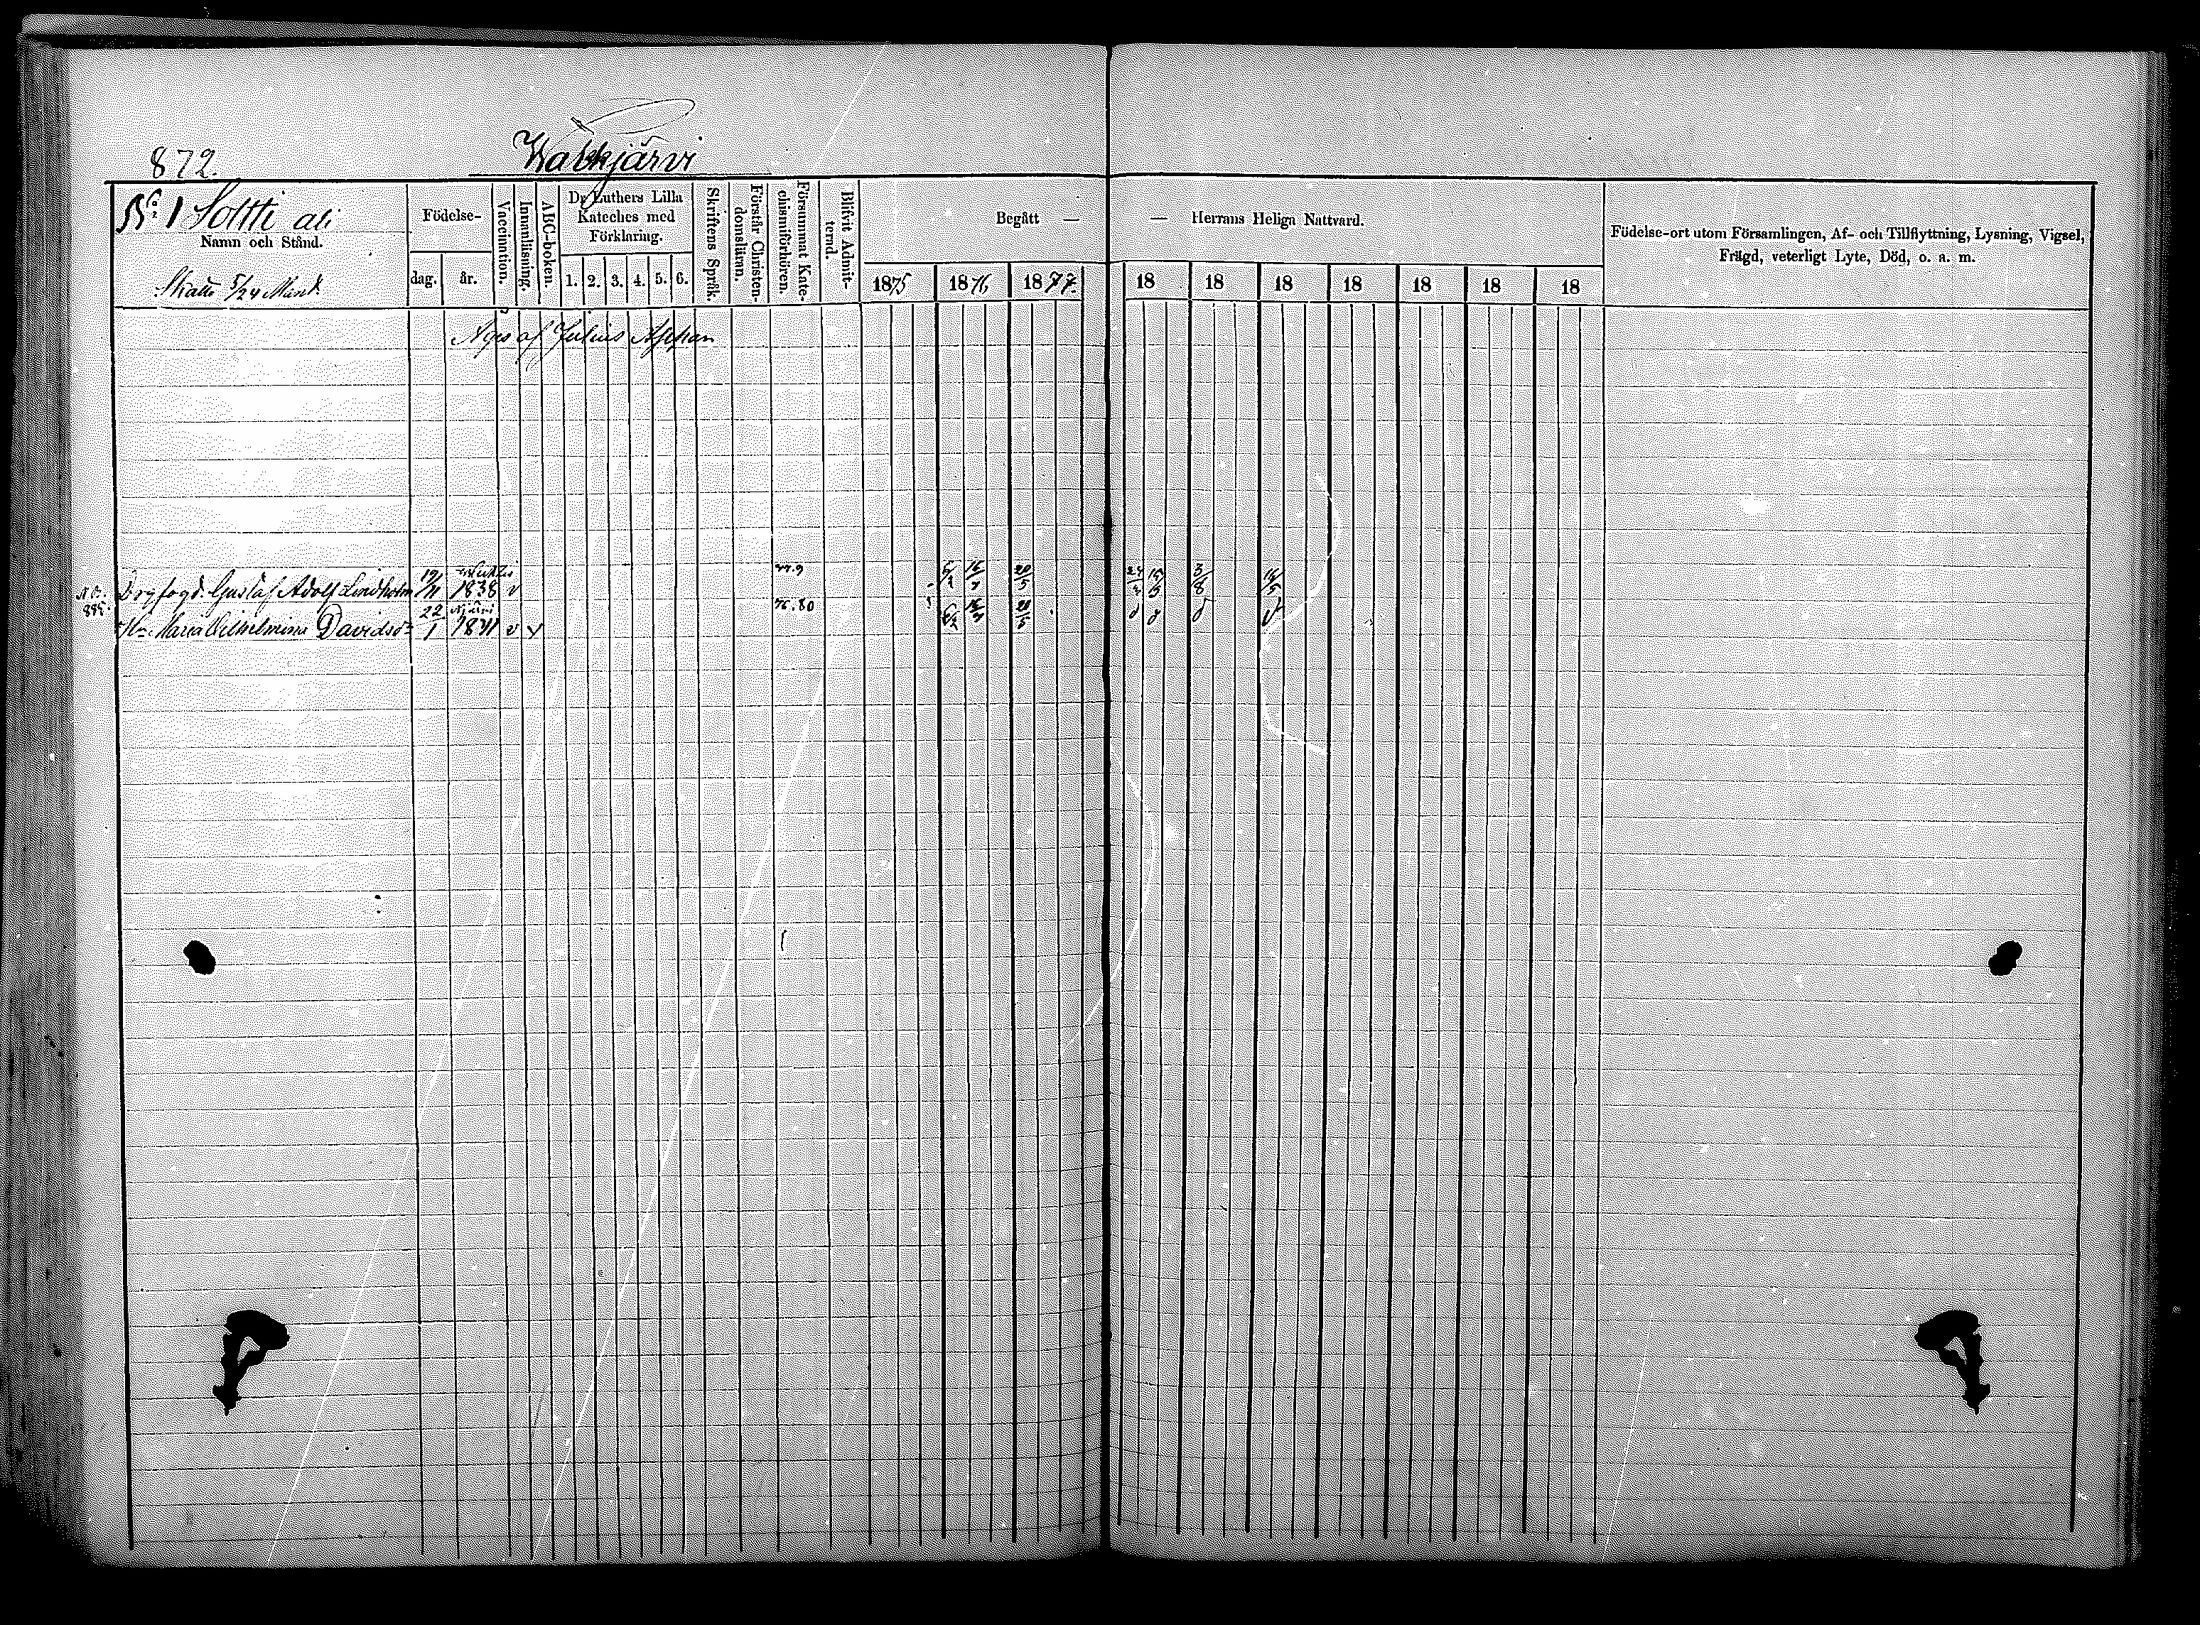 872.
Walkjärvi
No 1 Soltti ali
Namn och Stånd.
Skatte 5/24 Mant.
Födelse-
dag. år.
Vaccination.
Innanläsning.
ABC-boken.
Dr Luthers Lilla
Kateches med
Förklaring.
1. 2. 3. 4. 5. 6.
Skriftens Språk.
Förstår Christen-
domslänn.
Försummat Kate-
chismiförhören.
Blifvit Admit-
terad.
Begått — — Herrans Heliga Nattvard.
1875 1876 1877. 18 18 18 18 18 18 18
Födelse-ort utom Församlingen, Af- och Tillflyttning, Lysning, Vigsel,
Frägd, veterligt Lyte, Död, o. a. m.
Äges af Julius
Gustaf Adolf Lindholm 1838 v 77.9 20/5 3/8 16/5
Maria Wilhelmina Davidsdr 22/1 1841 v v 76.80 20/5